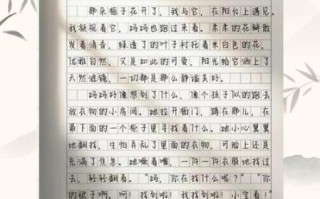 那朵栀子花开了，我与它，在阳台上遇见。
我凝视着它，妈妈也跑过来看。柔柔的花瓣散
发着清香，绿透了的叶子衬托着米白色的花，
优雅自然，又是如此的娇柔。阳光给它洒上了
天然滤镜，一切都是那么静谧美好。
妈妈好像想到了什么，像个孩子似的跑去
放衣物的小房间。她拉开柜门，蹲在那儿，在
最下面的一个柜子里寻找着什么。她小心翼翼
地翻找，生怕弄乱了里面的衣物，可脸上还是
充满了焦急。她噘着嘴，一件一件衣服地找过
去，轻轻翻看。“妈，你在找什么呢？”“你
的裙子啊，啊！找到啦！找到啦！小宝看！”